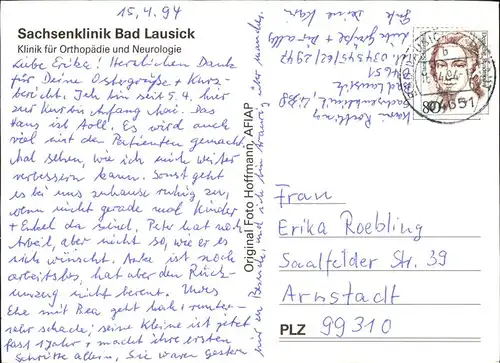 15.4.94
Sachsenklinik Bad Lausick
Klinik für Orthopädie und Neurologie
Liebe Erika! Herzlichen Dank
für Deine Ostergrüße + Kurz-
bericht. Ich bin seit 5.4. hier
zur Kur bis Anfang Mai. Das
Haus ist toll. Es wird auch
viel mit den Patienten gemacht
mal sehen, wie ich mich weiter
verbessern kann. Sonst geht
es bei uns zuhause ruhig zu,
wenn nicht gerade mal Kinder
+ Enkel da sind. Peter hat noch
Arbeit, aber nicht so, wie er es
sich wünscht. Anke ist noch
arbeitslos, hat aber den Rück-
umzug nicht bereut. Unsre
Ehe mit Bea geht hoch + runter -
sehr schade; seine Kleine ist jetzt
fast 1 Jahr + macht ihre ersten
Schritte allein. Sie waren gestern
zu Besuch, und ich bin traurig
Original Foto Hoffmann, AFIAP
Karin Roebling
Sachsenklinik,
Bad Lausick
04651
Tel. 034345/62/2947
Liebe Grüße + Dir alles
Gute Deine Karin
80
04651
Frau
Erika Roebling
Saalfelder Str. 39
Arnstadt
PLZ 99310